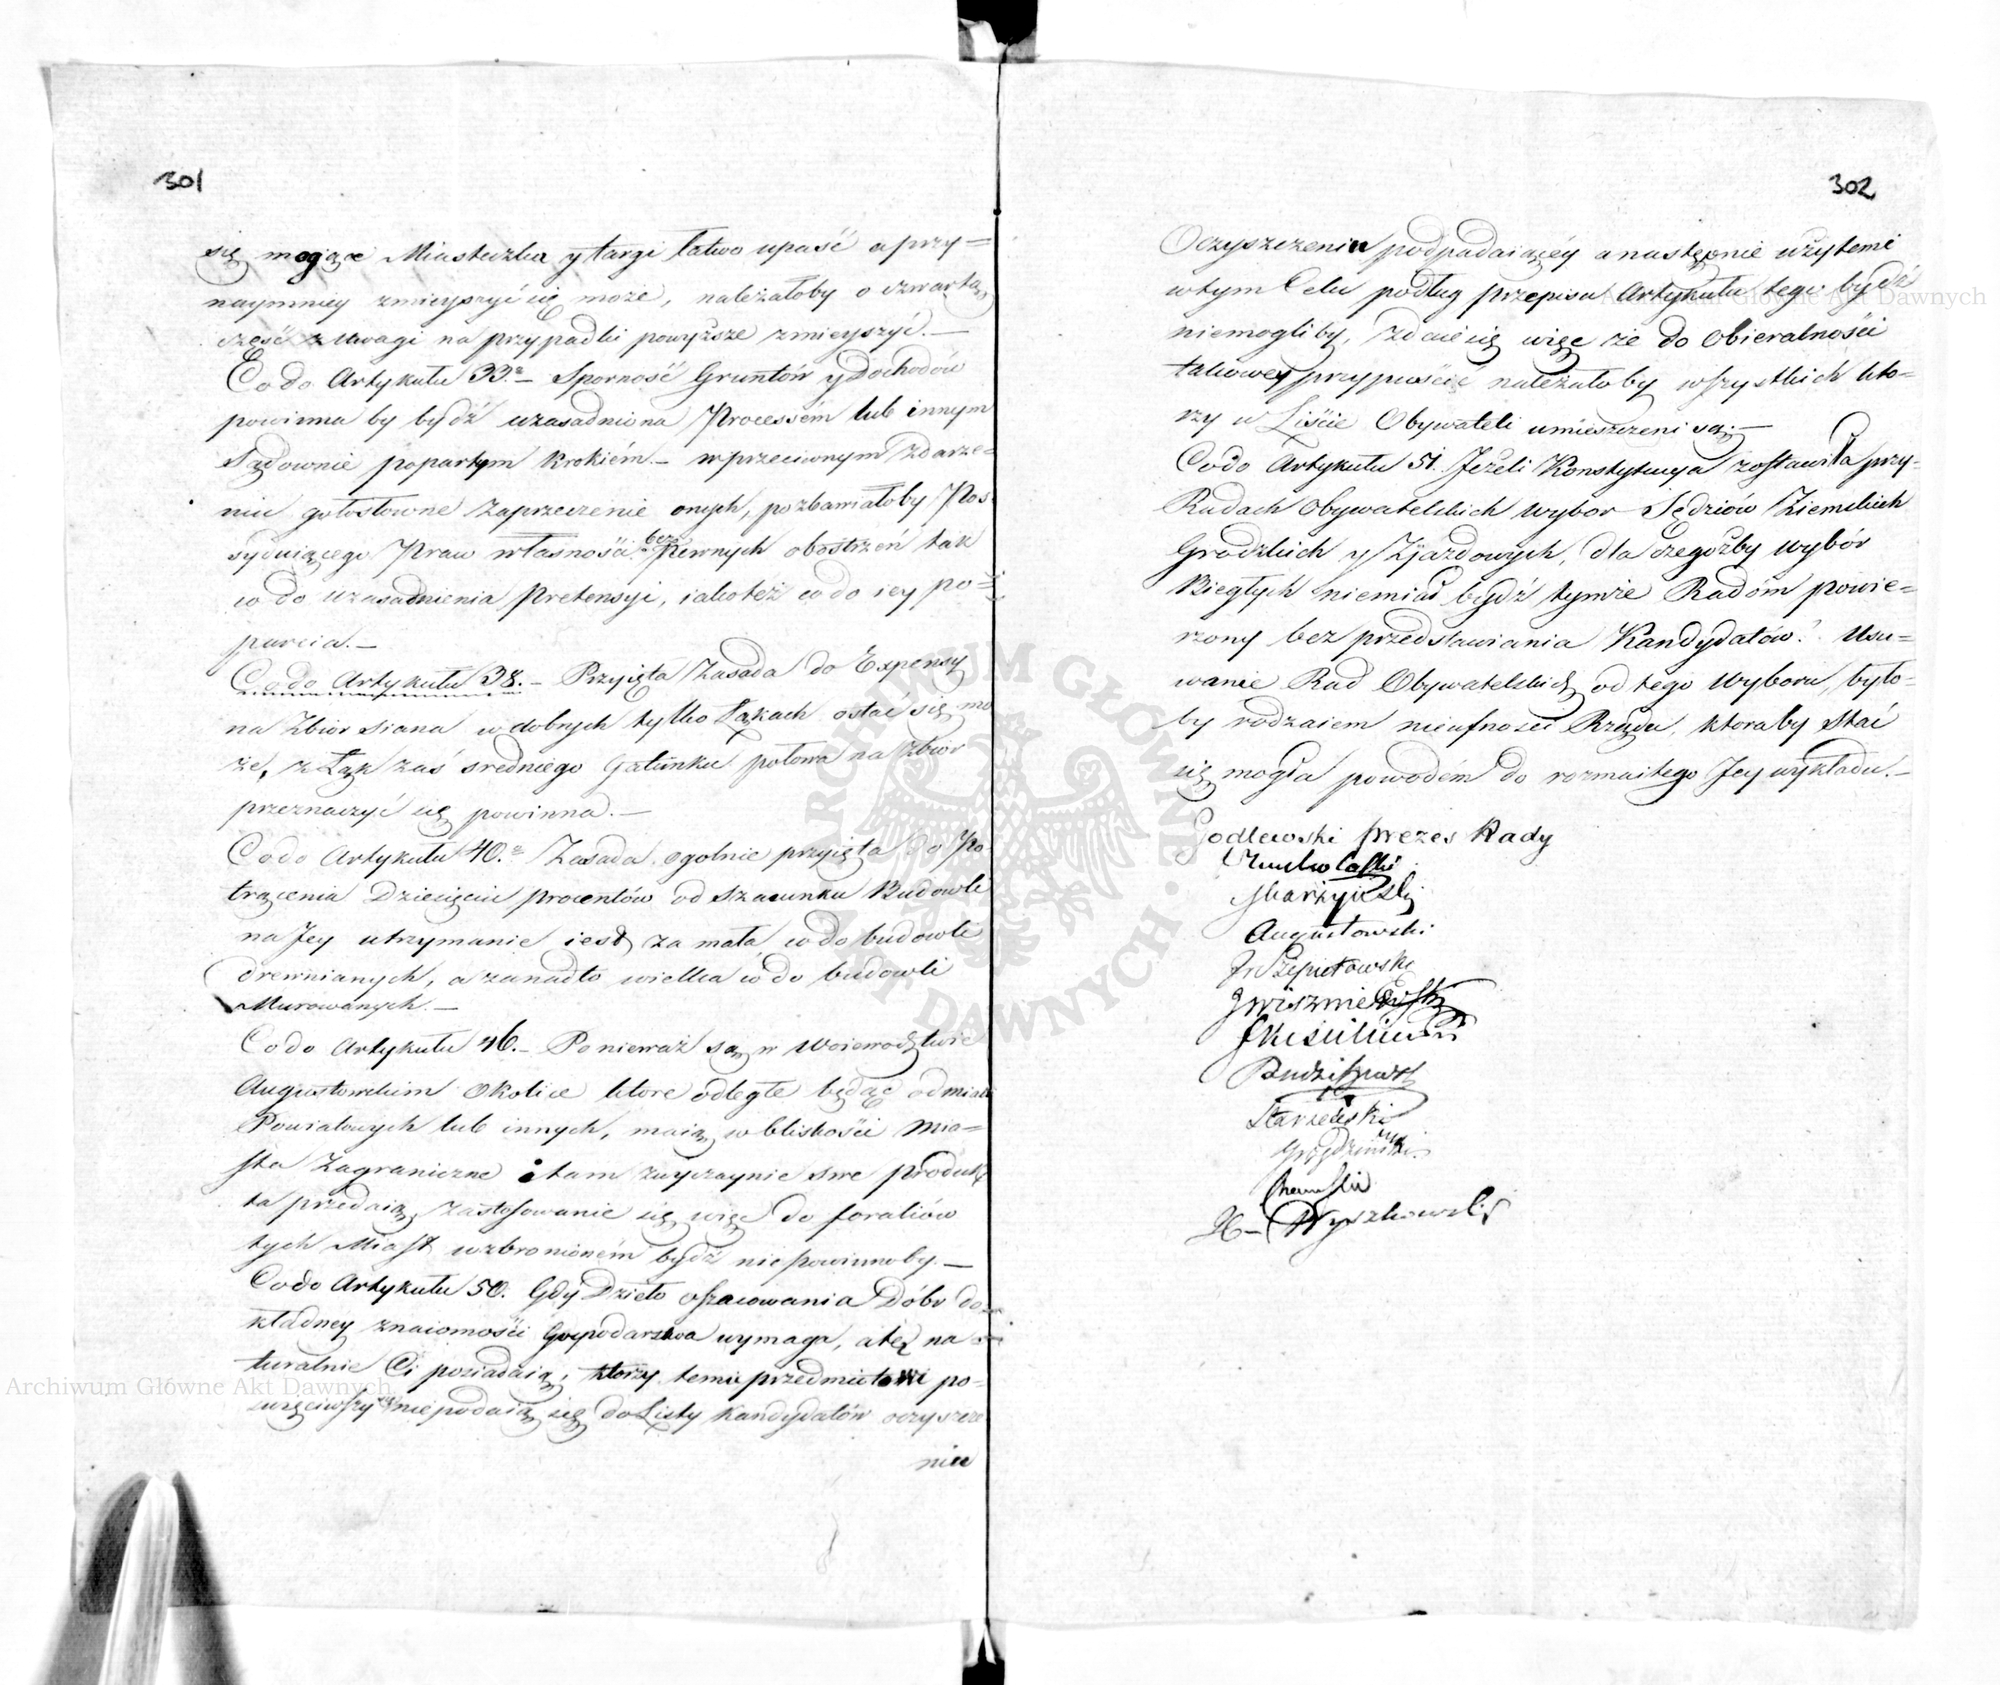 301
się mogące Miasteczka y targi łatwo upaść a przy=
naymniey zmieyszyć się może, należałoby o czwartą
część z uwagi na przypadki powyższe zmieyszyć.—
Co do Artykułu 33.º— Sporność Gruntów y Dochodów
powinna by bydź uzasadniona Processém lub innym
Sądownie popartym krokiém.— w przeciwnym zdarze=
niu gołosłowne zaprzeczenie onych, pozbawiałoby Pos
syduiącego Praw własności bez pewnych obostrzeń tak
co do uzasadnienia pretensyi, iakoteż co do iey po=
parcia.—
Co do Artykułu 38.— Przyięta Zasada do Expensy
na Zbior siana w dobrych tylko Łąkach ostać się mo
że, z Łąk zaś sredniego Gatunku połowa na zbior
przeznaczyć się powinna.—
Co do Artykułu 40.º Zasada ogolnie przyięta do Po
trącenia Dziesięciu procentów od szacunku Budowli
na Jey utrzymanie iest za mała co do budowli
drewnianych, a zanadto wielka co do budowli
Murowanych.—
Co do Artykułu 46.— Ponieważ są w Woiewodztwie
Augustowskim okolice ktore odległe będąc od miast
Powiatowych lub innych, maią w bliskości Mia=
sta Zagraniczne i tam zwyczaynie swe produk
ta przedaią, zastosowanie się więc do foraliów
tych Miast wzbronioném bydź nie powinnoby.—
Co do Artykułu 50. Gdy Dzieło oszacowania Dóbr do=
kładney znaiomości Gospodarstwa wymaga, a tę na=
turalnie Ci posiadaią, ktorzy temu przedmiotowi po=
swięciwszy się nie podaią się do Listy Kandydatów oczyszcze
niu
302
Oczyszczeniu podpadaiącéy a następnie użytemi
w tym Celu podług przepisu Artykułu tego bydź
niemogliby, zdaie się więc że do obieralności
takowey przypuścić należałoby wszystkich kto=
rzy w Liście Obywateli umieszczeni są.—
Co do Artykułu 51. Jeżeli Konstytucya zostawiła przy=
Radach Obywatelskich wybor Sędziów Ziemskich
Grodzkich y Zjazdowych, dla czegożby wybór
Biegłych niemiał bydź tymże Radóm powie=
rzony bez przedstawiania Kandydatów? Usu=
wanie Rad Obywatelskich od tego Wyboru, było=
by rodzaiem nieufności Rządu, ktoraby stać
się mogła powodém do rozmaitego Jey wykładu.—
Godlewski prezes Rady
Augustowski
Starzeński
H— Wyszkowski
Archiwum Główne Akt Dawnych